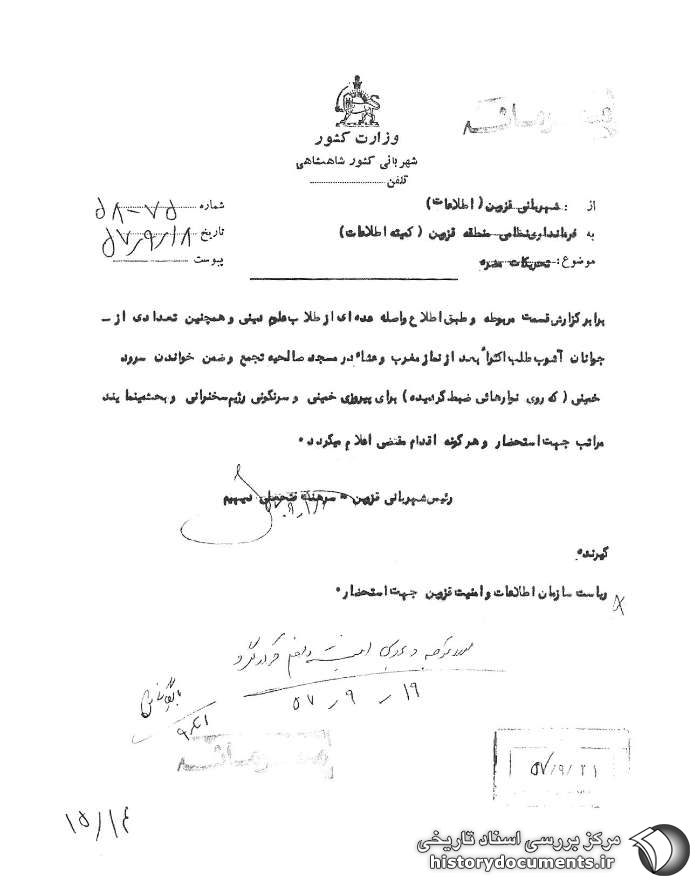 محرمانه
وزارت کشور
شهربانی کشور شاهنشاهی
تلفن
از : شهربانی قزوین ( اطلاعات )
شماره ۷۵-۵۸
به فرمانداری نظامی منطقه قزوین ( کمیته اطلاعات )
تاریخ ۵۷/۹/۱۸
موضوع : تحریکات مضره
پیوست
برابر گزارش قسمت مربوطه و طبق اطلاع واصله عده ای از طلاب علوم دینی و همچنین تعدادی از ـ
جوانان آشوب طلب اکثراً بعد از نماز مغرب و عشاء در مسجد صالحیه تجمع و ضمن خواندن سرود
خمینی ( که روی نوارهائی ضبط گردیده ) برای پیروزی خمینی و سرنگونی رژیم سخنرانی و بحث مینمایند
مراتب جهت استحضار و هرگونه اقدام مقتضی اعلام میگردد .
رئیس شهربانی قزوین - سرهنگ فتحعلی
گیرنده
ریاست سازمان اطلاعات و امنیت قزوین جهت استحضار .
مورد توجه
۵۷/۹/۱۹
محرمانه
۵۷/۹/۲۱
۱۵/۱۴
مرکز بررسی اسناد تاریخی
historydocuments.ir